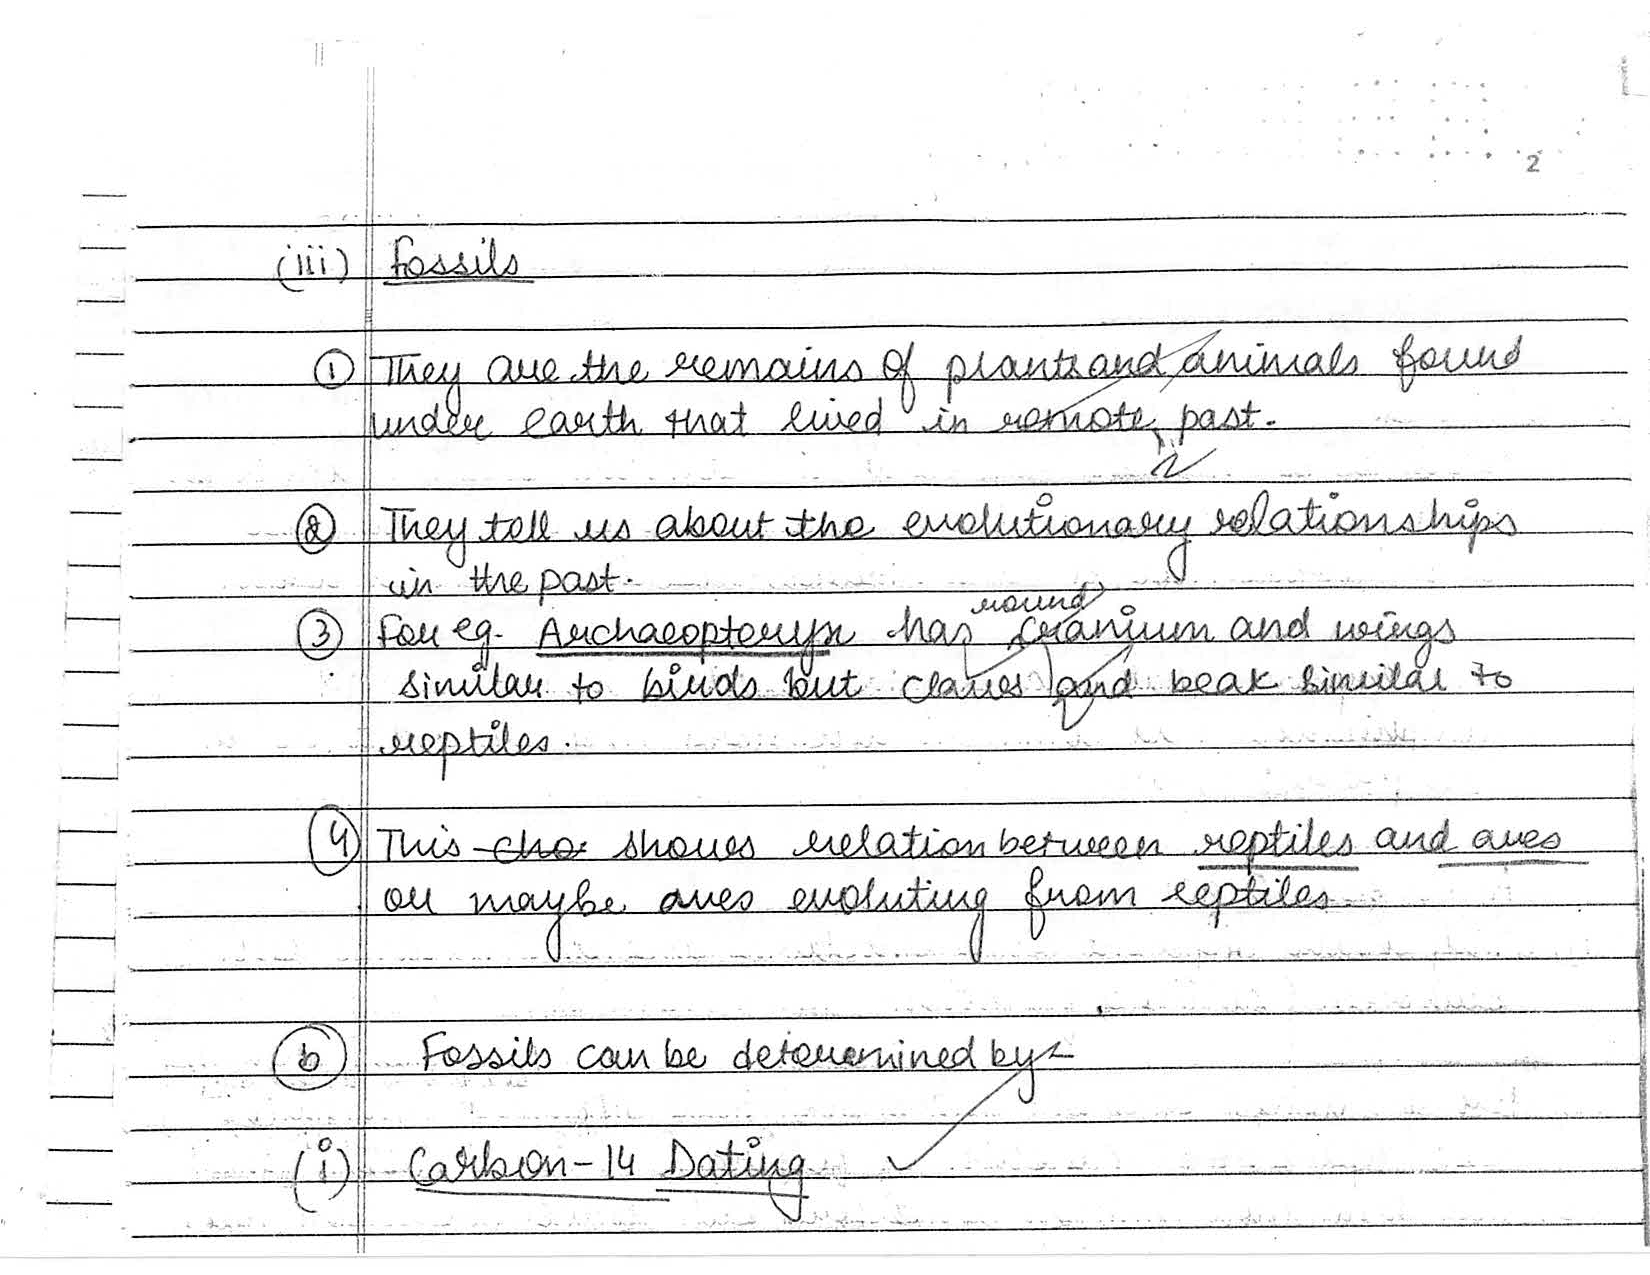 2
(iii) Fossils
① They are the remains of plants and animals found
under earth that lived in remote past.
② They tell us about the evolutionary relationships
in the past.
round
③ For eg. Archaeopteryx has cranium and wings
similar to birds but claws and beak similar to
reptiles.
④ This cha shows relation between reptiles and aves
or maybe aves evoluting from reptiles.
ⓑ Fossils can be determined by:-
(i) Carbon-14 Dating